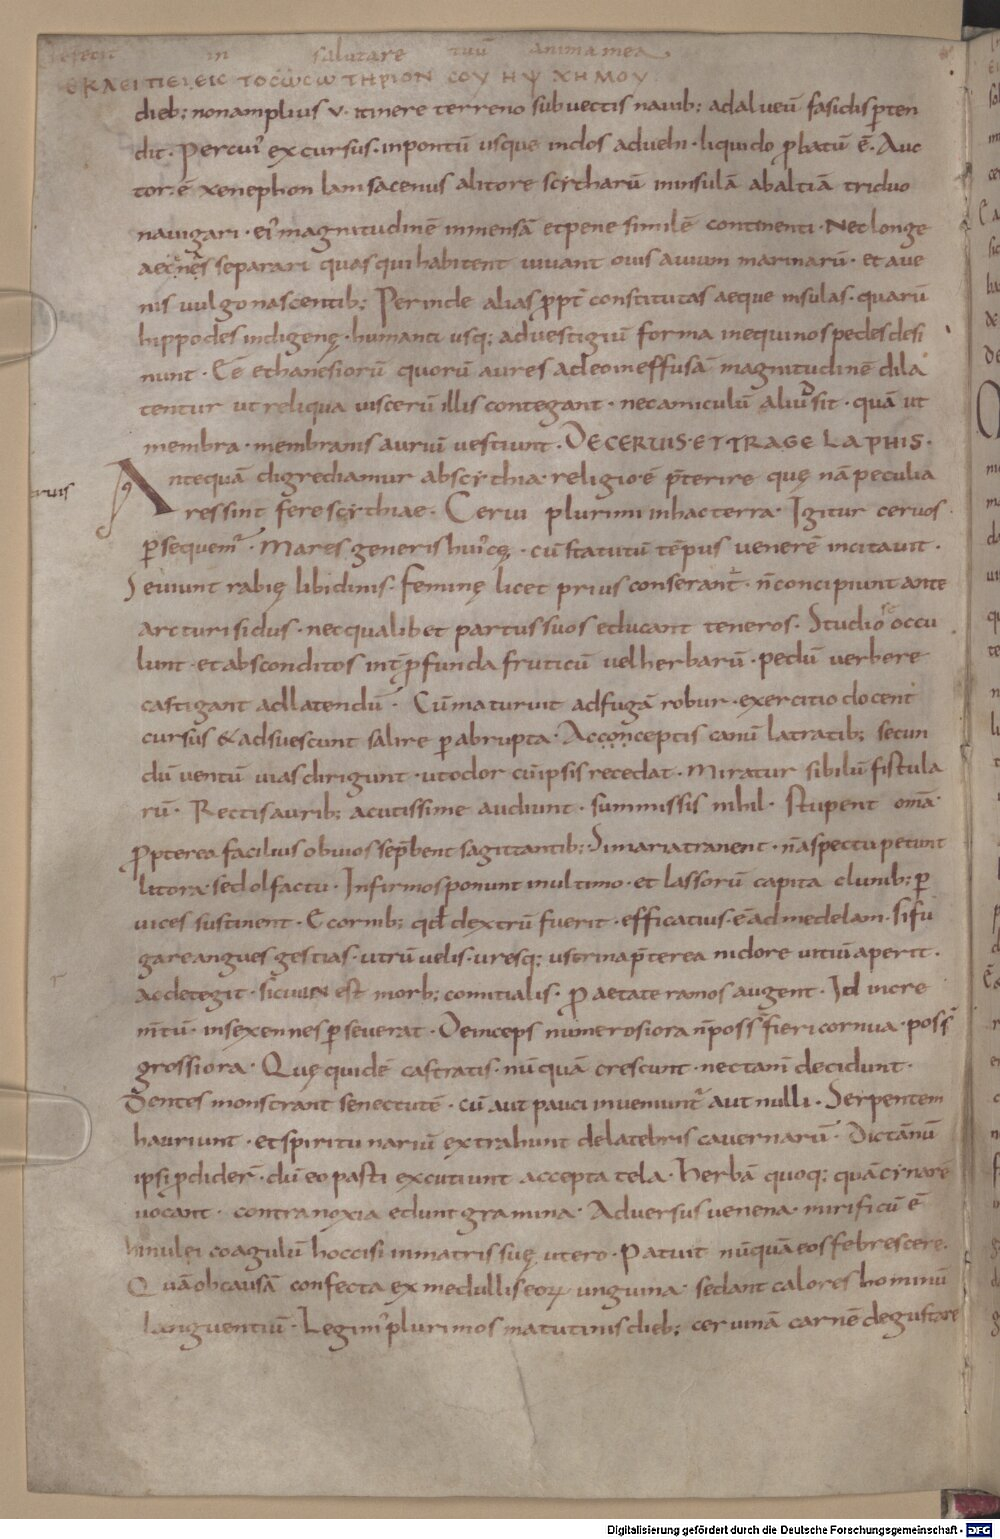 defecit in salutare tuū anima mea
ΕΚΛΕΙΠΕΙ ΕΙC ΤΟ CѠCѠΤΗΡΙΟΝ CΟΥ Η Ψ ΧΗ ΜΟΥ
dieb; non amplius v· itinere terreno subuectis nauib; ad alueū fasidis ꝑten
dit· Per cui' excursus· in pontū usque indos aduehi· liquido ꝓbatū ē· Auc
tor· ē xenephon lamsacenus a litore scẏtharū in insulā abaltiā triduo
nauigari· ei' magnitudinē inmensā et pene similē continenti· Nec longe
a separari quas qui habitent uiuant ouis auium marinarū· et aue
nis uulgo nascentib; Perinde alias ꝓpt̄ constitutas aeque insulas· quarū
hippodes indigenę· humani usq; ad uestigiū forma in equinos pedes desi
nunt· Eē et hanesiorū quorū aures adeo in effusā magnitudinē dila
tentur ut reliqua uiscerū illis contegant· nec amiculū aliud sit· quā ut
membra· membranis auriū uestiunt· DE CERUIS· ET TRAGELAPHIS·
ruis
Antequā digrediamur ab scẏthia· religio· ē p̄terire quę nā peculia
res sint fere scẏthiae· Cerui plurimi in hac terra· Igitur ceruos
ꝑsequem'· Mares generis hui'cę· cū statutū tēpus venerē incitauit·
Seuiunt rabię libidinis· Feminę licet prius conserant'· n̄ concipiunt ante
arcturi sidus· nec qualibet partus suos educant teneros· Studiose occu
lunt· et absconditos int̄ ꝓfunda fruticū uel herbarū· pedū verbere
castigant ad latendū· Cū maturuit ad fugā robur· exercitio docent
cursus & adsuescunt salire ꝑ abrupta· Acconceptis canū latratib; secun
dū ventū uias dirigunt· ut odor cū ipsis recedat· Miratur sibilū fistula
rū· Rectis aurib; acutissime audiunt· summissis nihil· Stupent om̄a·
ꝓpterea facilius obuios se p̄bent sagittantib; Si maria tranent· n̄ aspectu petunt
litora· sed olfactu· Infirmos ponunt in ultimo· et lassorū capita clunib; ꝑ
uices sustinent· E cornib; qd̄ dextrū fuerit· efficatius· ē ad medelam· Si fu
gare angues gestias· utrū uelis· uresq; ustrina p̄terea nidore uitiū aperit·
ac detegit· si cui IN est morb; comitialis· ꝓ aetate ramos augent· Id incre
m̄tū· in sexennes ꝑseuerat· Deinceps numerosiora n̄ poss' fieri cornua· poss'
grossiora· Quę quidē castratis· nūquā crescunt· nec tam̄ decidunt·
Dentes monstrant senectutē· cū aut pauci inueniunt' aut nulli· Serpentem
hauriunt· et spiritu nariū extrahunt de latebris cauernarū· Dictānū
ipsi ꝓdider̄· dū eo pasti excutiunt accepta tela· Herbā quoq; quā cẏnarē
uocant· contra noxia edunt gramina· Aduersus uenena· mirificū ē
hinulei coagulū hoccisi in matris suę utero· Patuit nūquā eos febrescere·
Quā ob causā confecta ex medullis eoꝝ unguina· sedant calores hominū
languentiū· Legim' plurimos matutinis dieb; ceruinā carnē degustare
Digitalisierung gefördert durch die Deutsche Forschungsgemeinschaft - DFG